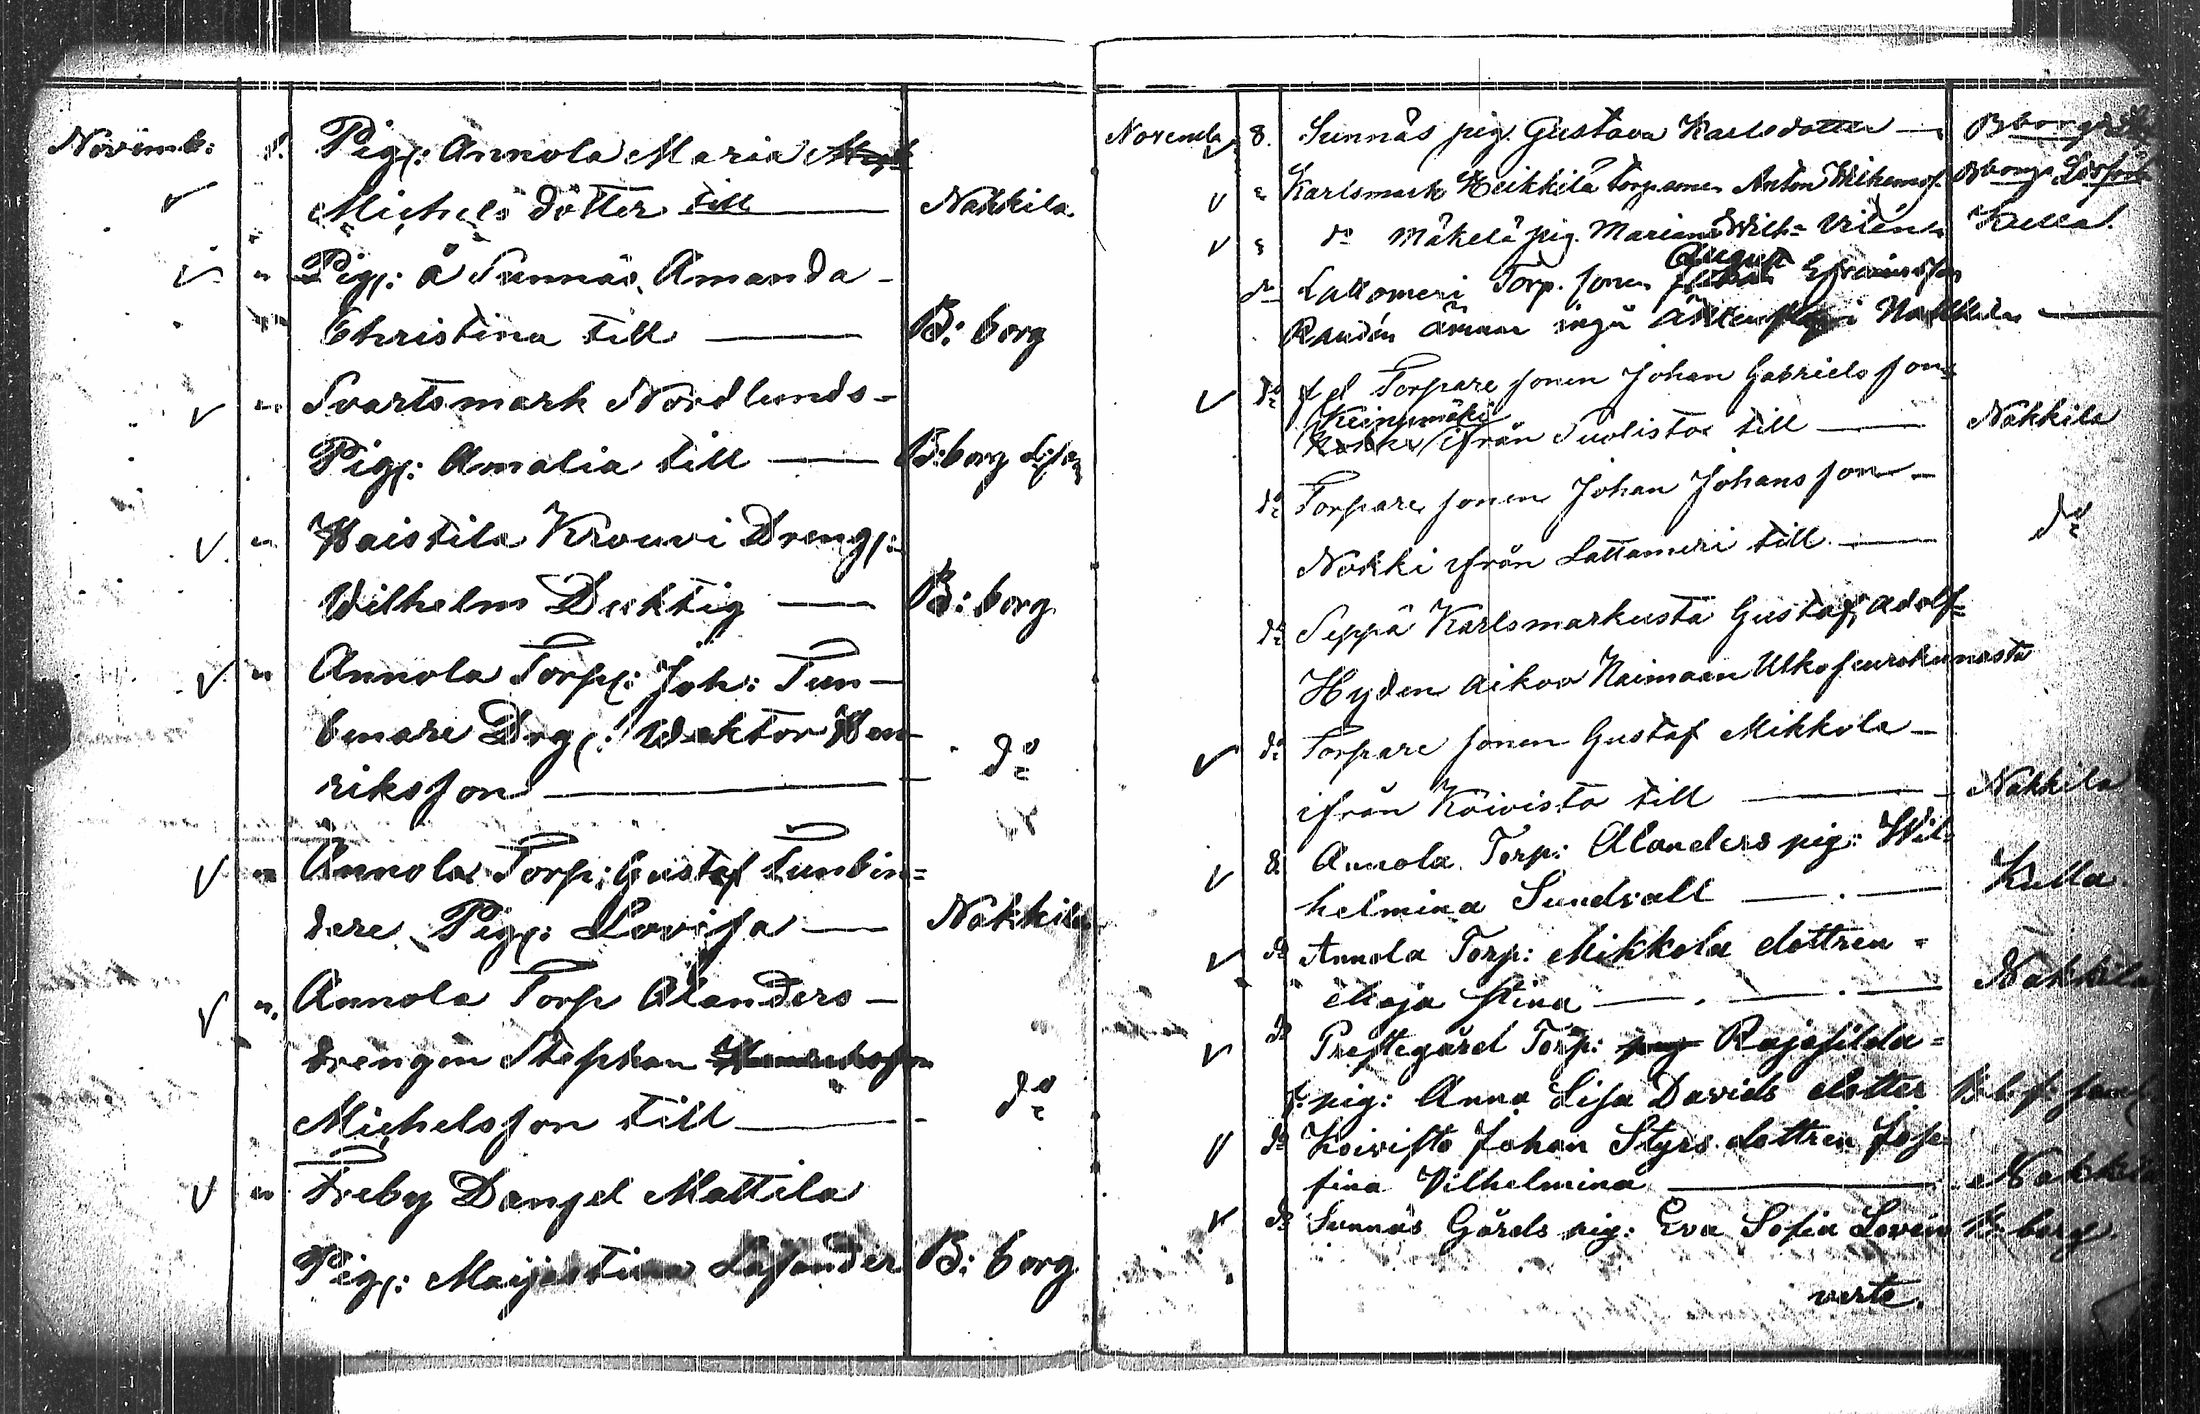 Novemb: 8. Pig: Annola Maria
Michels dotter till — Nakkila
" Pig: å Sunnäs, Amanda -
Christina till — B: borg
" Svartsmark Nordlunds =
Pig: Amalia till — B:borg
" Haistila Krouvi Dreng:
Wilhelm Ducktig — B: borg
" Annola Torp: Joh: Tun-
binare Drg: Wektor Hen-
riksson — do
" Annola Torp: Gustaf Tunbin=
dere Pig: Lovisa — Nakkila
" Annola Torp Alanders —
drengen Stephan
Michelsson till — do
" Freby Danjel Mattila
Pig: Maijastina Lasander B: borg
Novemb 8. Sunnäs pig. Gustava Karlsdotter —
" Karlsmark Heikkilä Torpsonen Anton Wilhemss. Bborgs
" do Mäkelä pig. Mariana Wilh= Vilén Kulla.
August
do Lattomeri Torp. sonen Efraimsson
Randén ämnar ingå i Nakkila —
do f d Torpare sonen Johan Gabrielsson
Keinumäki
ifrån Suolisto till — Nakkila
do Torpare sonen Johan Johansson —
Nokki ifrån Lattomeri till — do
do Seppä Karlsmarkusta Gustaf Adolf=
Hyden aikoo Naimaan Ulkoseurakunasta
do Torpare sonen Gustaf Mikkola —
ifrån Koivisto till — Nakkila
d Annola Torp: Alanders pig: Wil=
helmina Sundvall — Kulla.
do Annola Torp: Mikkola dottren =
Maja Stina — Nakkila
do Prestegård Torp: Rajasilda =
f. pig: Anna Lisa Davids dotter
do Koivisto Johan Styrs dottren Jose
fina Vilhelmina — Nakkila
do Sunnäs Gårds pig: Eva Sofia Lovén B: borg.
verte.